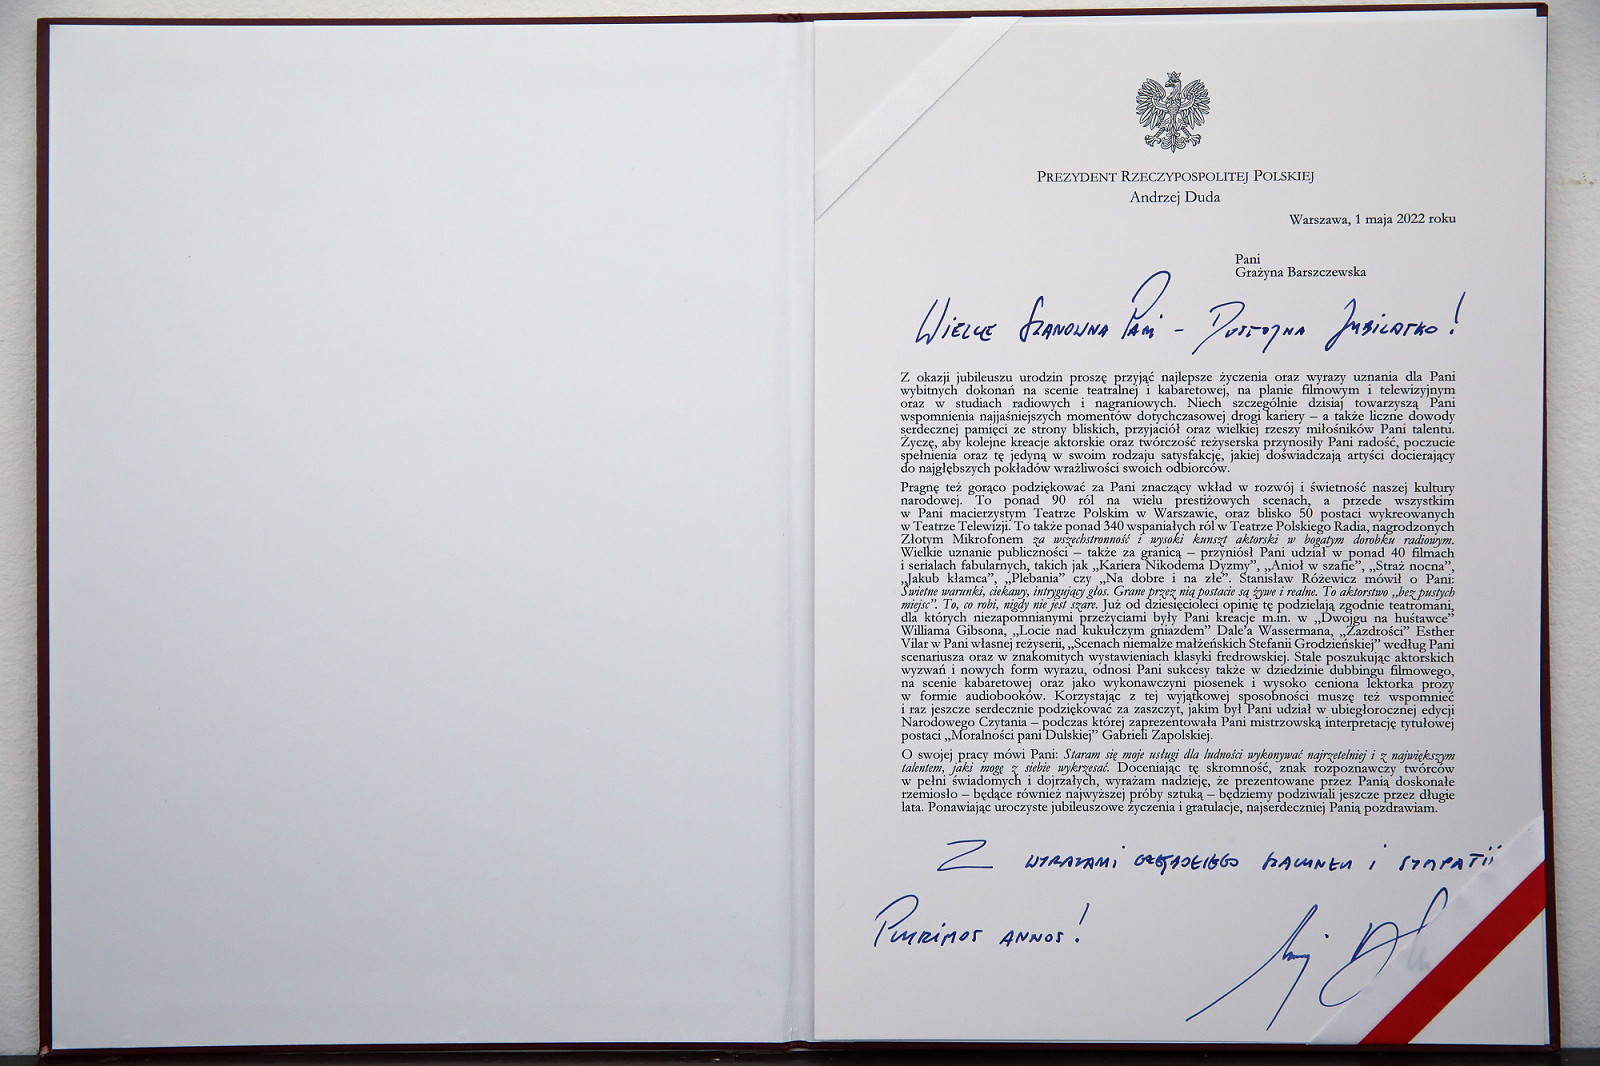 PREZYDENT RZECZYPOSPOLITEJ POLSKIEJ
Andrzej Duda
Warszawa, 1 maja 2022 roku
Pani
Grażyna Barszczewska
Wielce Szanowna Pani – Dostojna Jubilatko!
Z okazji jubileuszu urodzin proszę przyjąć najlepsze życzenia oraz wyrazy uznania dla Pani
wybitnych dokonań na scenie teatralnej i kabaretowej, na planie filmowym i telewizyjnym
oraz w studiach radiowych i nagraniowych. Niech szczególnie dzisiaj towarzyszą Pani
wspomnienia najjaśniejszych momentów dotychczasowej drogi kariery – a także liczne dowody
serdecznej pamięci ze strony bliskich, przyjaciół oraz wielkiej rzeszy miłośników Pani talentu.
Życzę, aby kolejne kreacje aktorskie oraz twórczość reżyserska przynosiły Pani radość, poczucie
spełnienia oraz tę jedyną w swoim rodzaju satysfakcję, jakiej doświadczają artyści docierający
do najgłębszych pokładów wrażliwości swoich odbiorców.
Pragnę też gorąco podziękować za Pani znaczący wkład w rozwój i świetność naszej kultury
narodowej. To ponad 90 ról na wielu prestiżowych scenach, a przede wszystkim
w Pani macierzystym Teatrze Polskim w Warszawie, oraz blisko 50 postaci wykreowanych
w Teatrze Telewizji. To także ponad 340 wspaniałych ról w Teatrze Polskiego Radia, nagrodzonych
Złotym Mikrofonem za wszechstronność i wysoki kunszt aktorski w bogatym dorobku radiowym.
Wielkie uznanie publiczności – także za granicą – przyniósł Pani udział w ponad 40 filmach
i serialach fabularnych, takich jak „Kariera Nikodema Dyzmy”, „Anioł w szafie”, „Straż nocna”,
„Jakub kłamca”, „Plebania” czy „Na dobre i na złe”. Stanisław Różewicz mówił o Pani:
Świetne warunki, ciekawy, intrygujący głos. Grane przez nią postacie są żywe i realne. To aktorstwo „bez pustych
miejsc”. To, co robi, nigdy nie jest szare. Już od dziesięcioleci opinię tę podzielają zgodnie teatromani,
dla których niezapomnianymi przeżyciami były Pani kreacje m.in. w „Dwojgu na huśtawce”
Williama Gibsona, „Locie nad kukułczym gniazdem” Dale’a Wassermana, „Zazdrości” Esther
Vilar w Pani własnej reżyserii, „Scenach niemalże małżeńskich Stefanii Grodzieńskiej” według Pani
scenariusza oraz w znakomitych wystawieniach klasyki fredrowskiej. Stale poszukując aktorskich
wyzwań i nowych form wyrazu, odnosi Pani sukcesy także w dziedzinie dubbingu filmowego,
na scenie kabaretowej oraz jako wykonawczyni piosenek i wysoko ceniona lektorka prozy
w formie audiobooków. Korzystając z tej wyjątkowej sposobności muszę też wspomnieć
i raz jeszcze serdecznie podziękować za zaszczyt, jakim był Pani udział w ubiegłorocznej edycji
Narodowego Czytania – podczas której zaprezentowała Pani mistrzowską interpretację tytułowej
postaci „Moralności pani Dulskiej” Gabrieli Zapolskiej.
O swojej pracy mówi Pani: Staram się moje usługi dla ludności wykonywać najrzetelniej i z największym
talentem, jaki mogę z siebie wykrzesać. Doceniając tę skromność, znak rozpoznawczy twórców
w pełni świadomych i dojrzałych, wyrażam nadzieję, że prezentowane przez Panią doskonałe
rzemiosło – będące również najwyższej próby sztuką – będziemy podziwiali jeszcze przez długie
lata. Ponawiając uroczyste jubileuszowe życzenia i gratulacje, najserdeczniej Panią pozdrawiam.
Z wyrazami głębokiego szacunku i sympatii
Plurimos annos!